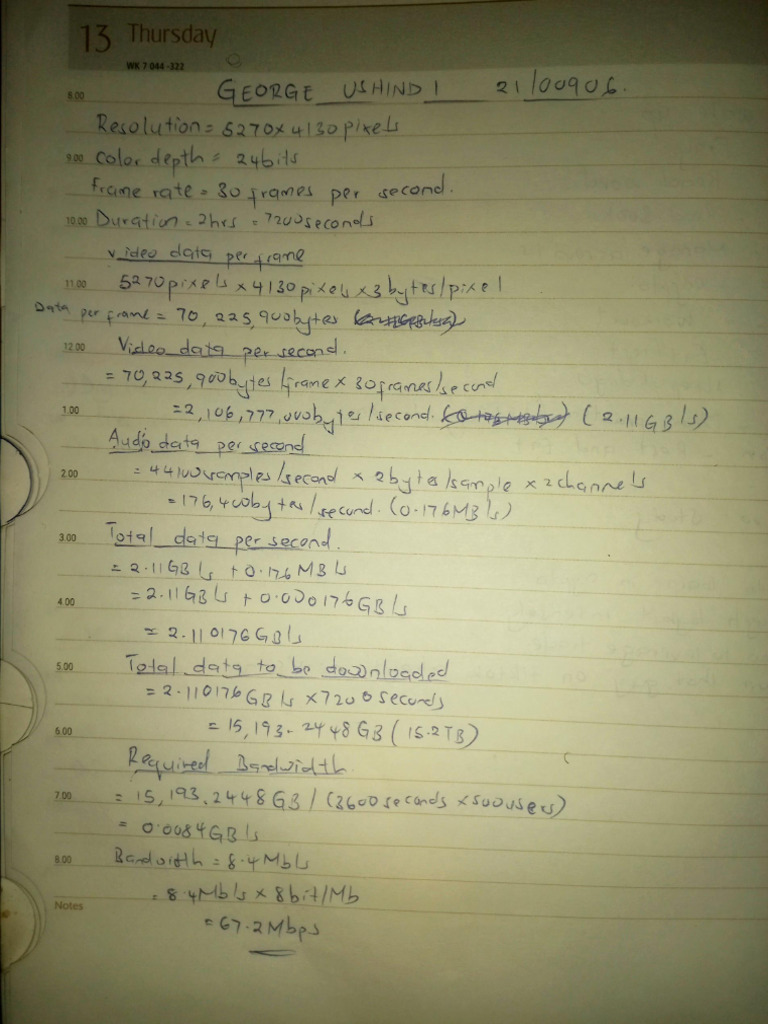 13 Thursday
WK 7 044-322
GEORGE USHINDI 21/00906.
8.00
Resolution = 5270 x 4130 pixels
9.00 Color depth = 24bits
frame rate = 30 frames per second.
10.00 Duration = 2hrs = 7200 seconds
video data per frame
11.00 5270 pixels x 4130 pixels x 3 bytes/pixel
Data per frame = 70, 225, 900 bytes
12.00 Video data per second.
= 70,225,900 bytes/frame x 30 frames/second
1.00 = 2,106,777,000 bytes/second. (2.11 GB/s)
Audio data per second
2.00 = 44100 samples/second x 2 bytes/sample x 2 channels
= 176,400 bytes/second. (0.176 MB/s)
3.00 Total data per second.
= 2.11 GB/s + 0.176 MB/s
4.00 = 2.11 GB/s + 0.000176 GB/s
= 2.110176 GB/s
5.00 Total data to be downloaded
= 2.110176 GB/s x 7200 seconds
6.00 = 15,193.2448 GB (15.2TB)
Required Bandwidth.
7.00 = 15,193.2448 GB / (3600 seconds x 500 users)
= 0.0084 GB/s
8.00 Bandwidth = 8.4 Mb/s
= 8.4 Mb/s x 8bit/Mb
Notes
= 67.2 Mbps